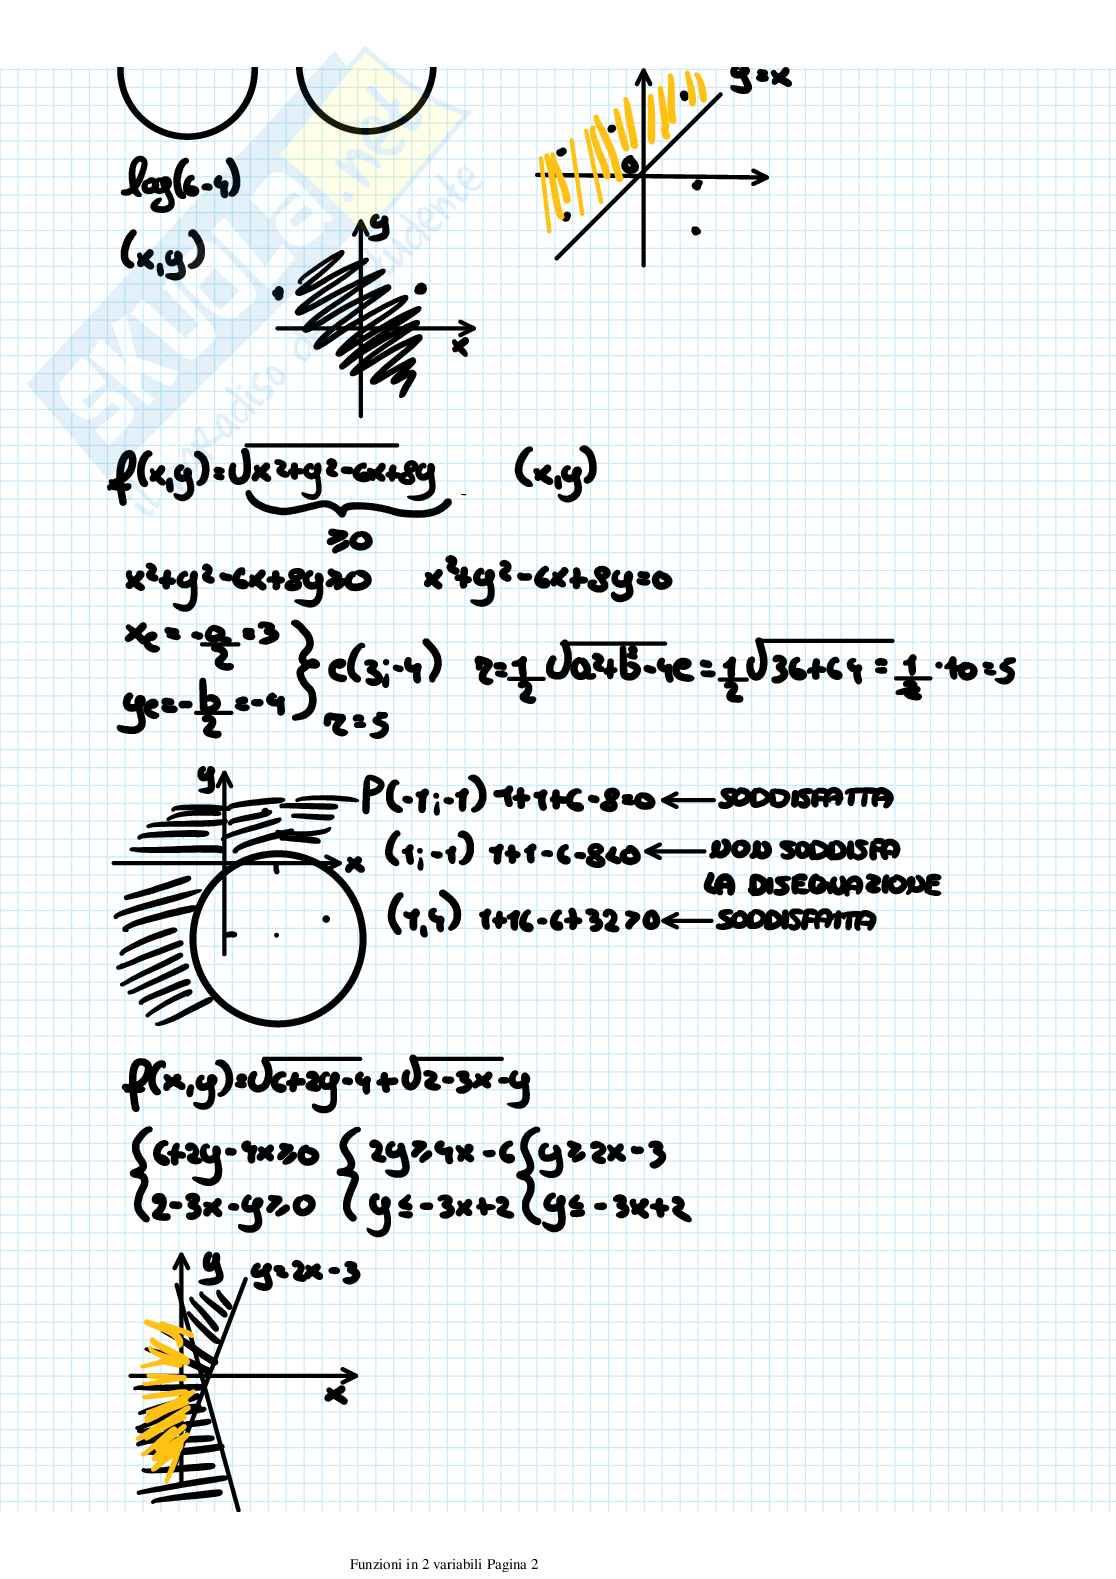 y=x
log(6-4)
(x,y)
y
x
f(x,y)=√x²+y²-6x+8y (x,y)
≥0
x²+y²-6x+8y≥0 x²+y²-6x+8y=0
xc=-a/2=3
yc=-b/2=-4
c(3;-4) r=1/2√a²+b²-4c=1/2√36+64=1/2·10=5
r=5
y
x
P(-1;-1) 1+1+6-8=0 ← SODDISFATTA
(1;-1) 1+1-6-8<0 ← NON SODDISFA
LA DISEQUAZIONE
(1,4) 1+16-6+32>0 ← SODDISFATTA
f(x,y)=√6+2y-4+√2-3x-y
{6+2y-4x≥0 {2y≥4x-6 {y≥2x-3
{2-3x-y≥0 {y≤-3x+2 {y≤-3x+2
y y=2x-3
x
SKUOLA.net
Funzioni in 2 variabili Pagina 2